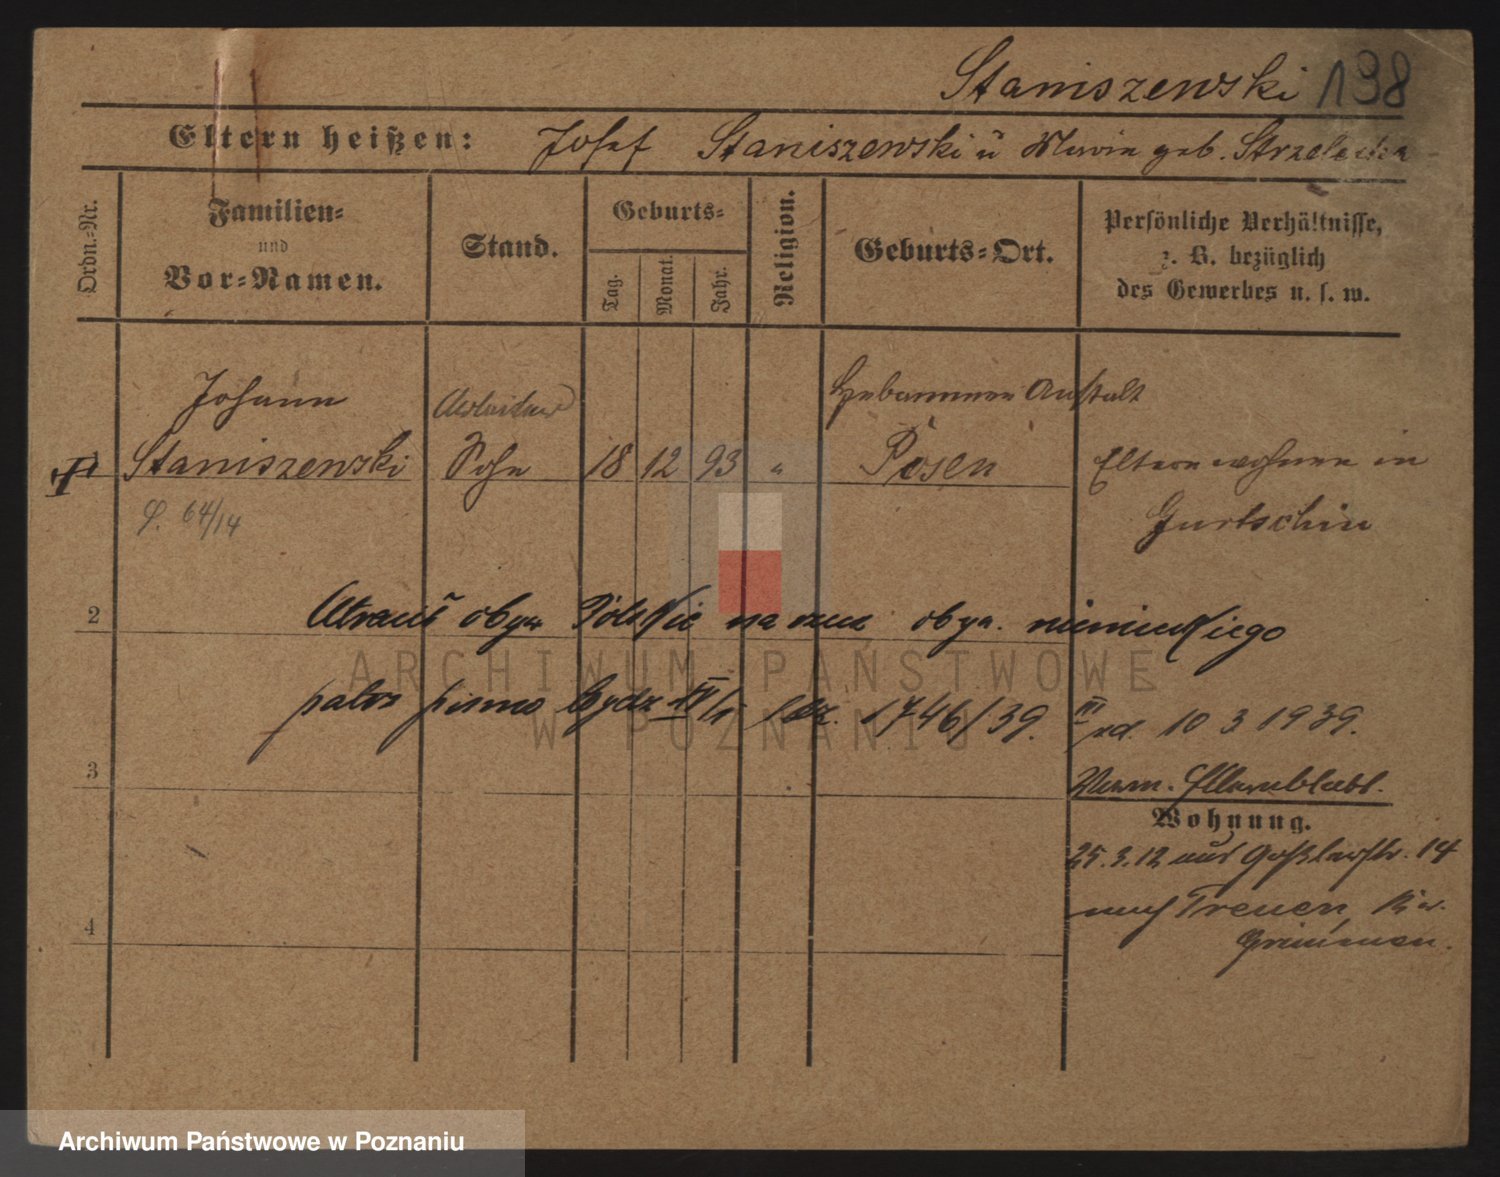 Staniszewski 198
Eltern heißen: Josef Staniszewski u Marie geb. Strzelecka
Ordn.-Nr.
Familien-
und
Vor-Namen.
Stand.
Geburts-
Tag.
Monat.
Jahr.
Religion.
Geburts-Ort.
Persönliche Verhältnisse,
z. B. bezüglich
des Gewerbes u. s. w.
Johann
Arbeiter
Hebammen Anstalt
Staniszewski
Sohn
18 12 93 "
Posen
Eltern wohnen in
Gurtschin
64/14
2
obyw. na rzecz obyw. niemieckiego
ARCHIWUM PAŃSTWOWE
W POZNANIU
patrz pismo 1746/39. III z d. 10 3 1939.
3
Wohnung.
25.3.12 aus Goßlerstr. 14
nach Treuen, Kr.
Grimmen.
4
Archiwum Państwowe w Poznaniu